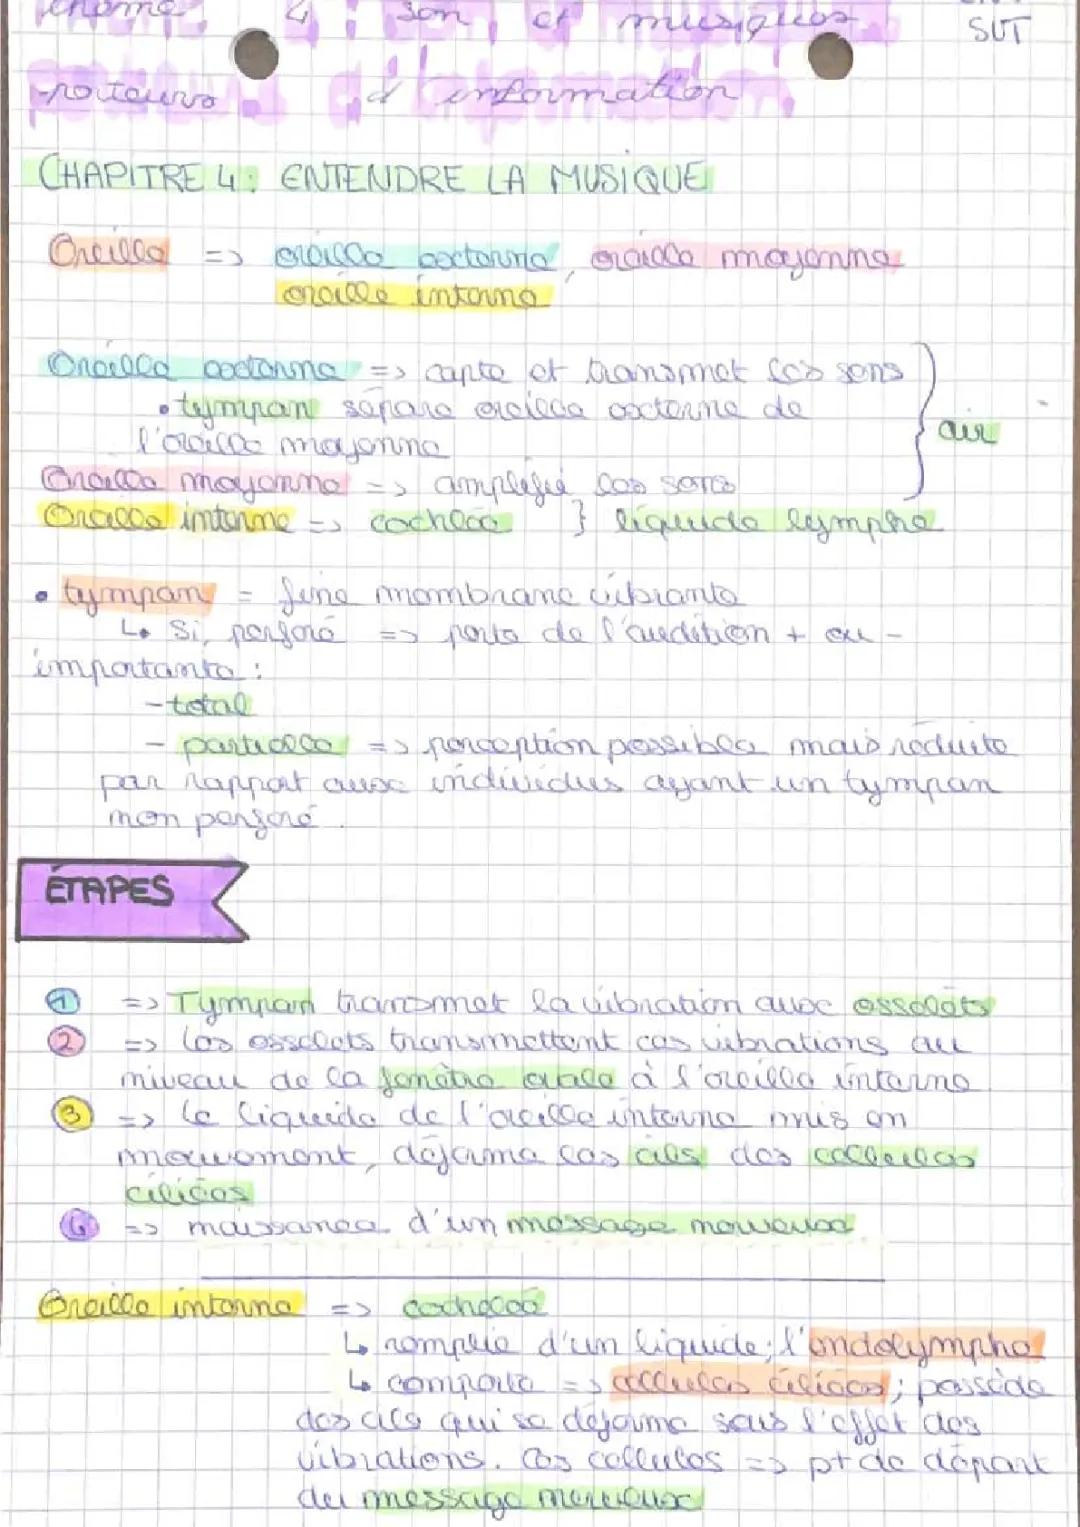 thème 4 : son et musiques
SVT
porteurs d'information
CHAPITRE 4 : ENTENDRE LA MUSIQUE
Oreille => oreille externe, oreille moyenne
oreille interne
Oreille externe => capte et transmet les sons
• tympan sépare oreille externe de
l'oreille moyenne
air
Oreille moyenne => amplifie les sons
Oreille interne => cochlée } liquide lymphe
• tympan = fine membrane vibrante
↳ Si, perforé => perte de l'audition + ou -
importante :
- total
- partielle => perception possible mais réduite
par rapport aux individus ayant un tympan
non perforé.
ÉTAPES
1 => Tympan transmet la vibration aux osselets
2 => Les osselets transmettent ces vibrations au
niveau de la fenêtre ovale à l'oreille interne
3 => Le liquide de l'oreille interne mis en
mouvement, déforme les cils des cellules
ciliées
4 => naissance d'un message nerveux
Oreille interne => cochlée
↳ remplie d'un liquide; l'endolymphe
↳ comporte => cellules ciliées; possède
des cils qui se déforme sous l'effet des
vibrations. Ces cellules => pt de départ
du message nerveux